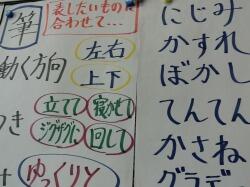 筆
表したいものに
合わせて…
動く方向
左右
上下
立てて 寝かせて
ジグザグに 回して
ゆっくりと
にじみ
かすれ
ぼかし
てんてん
かさね
グラデ